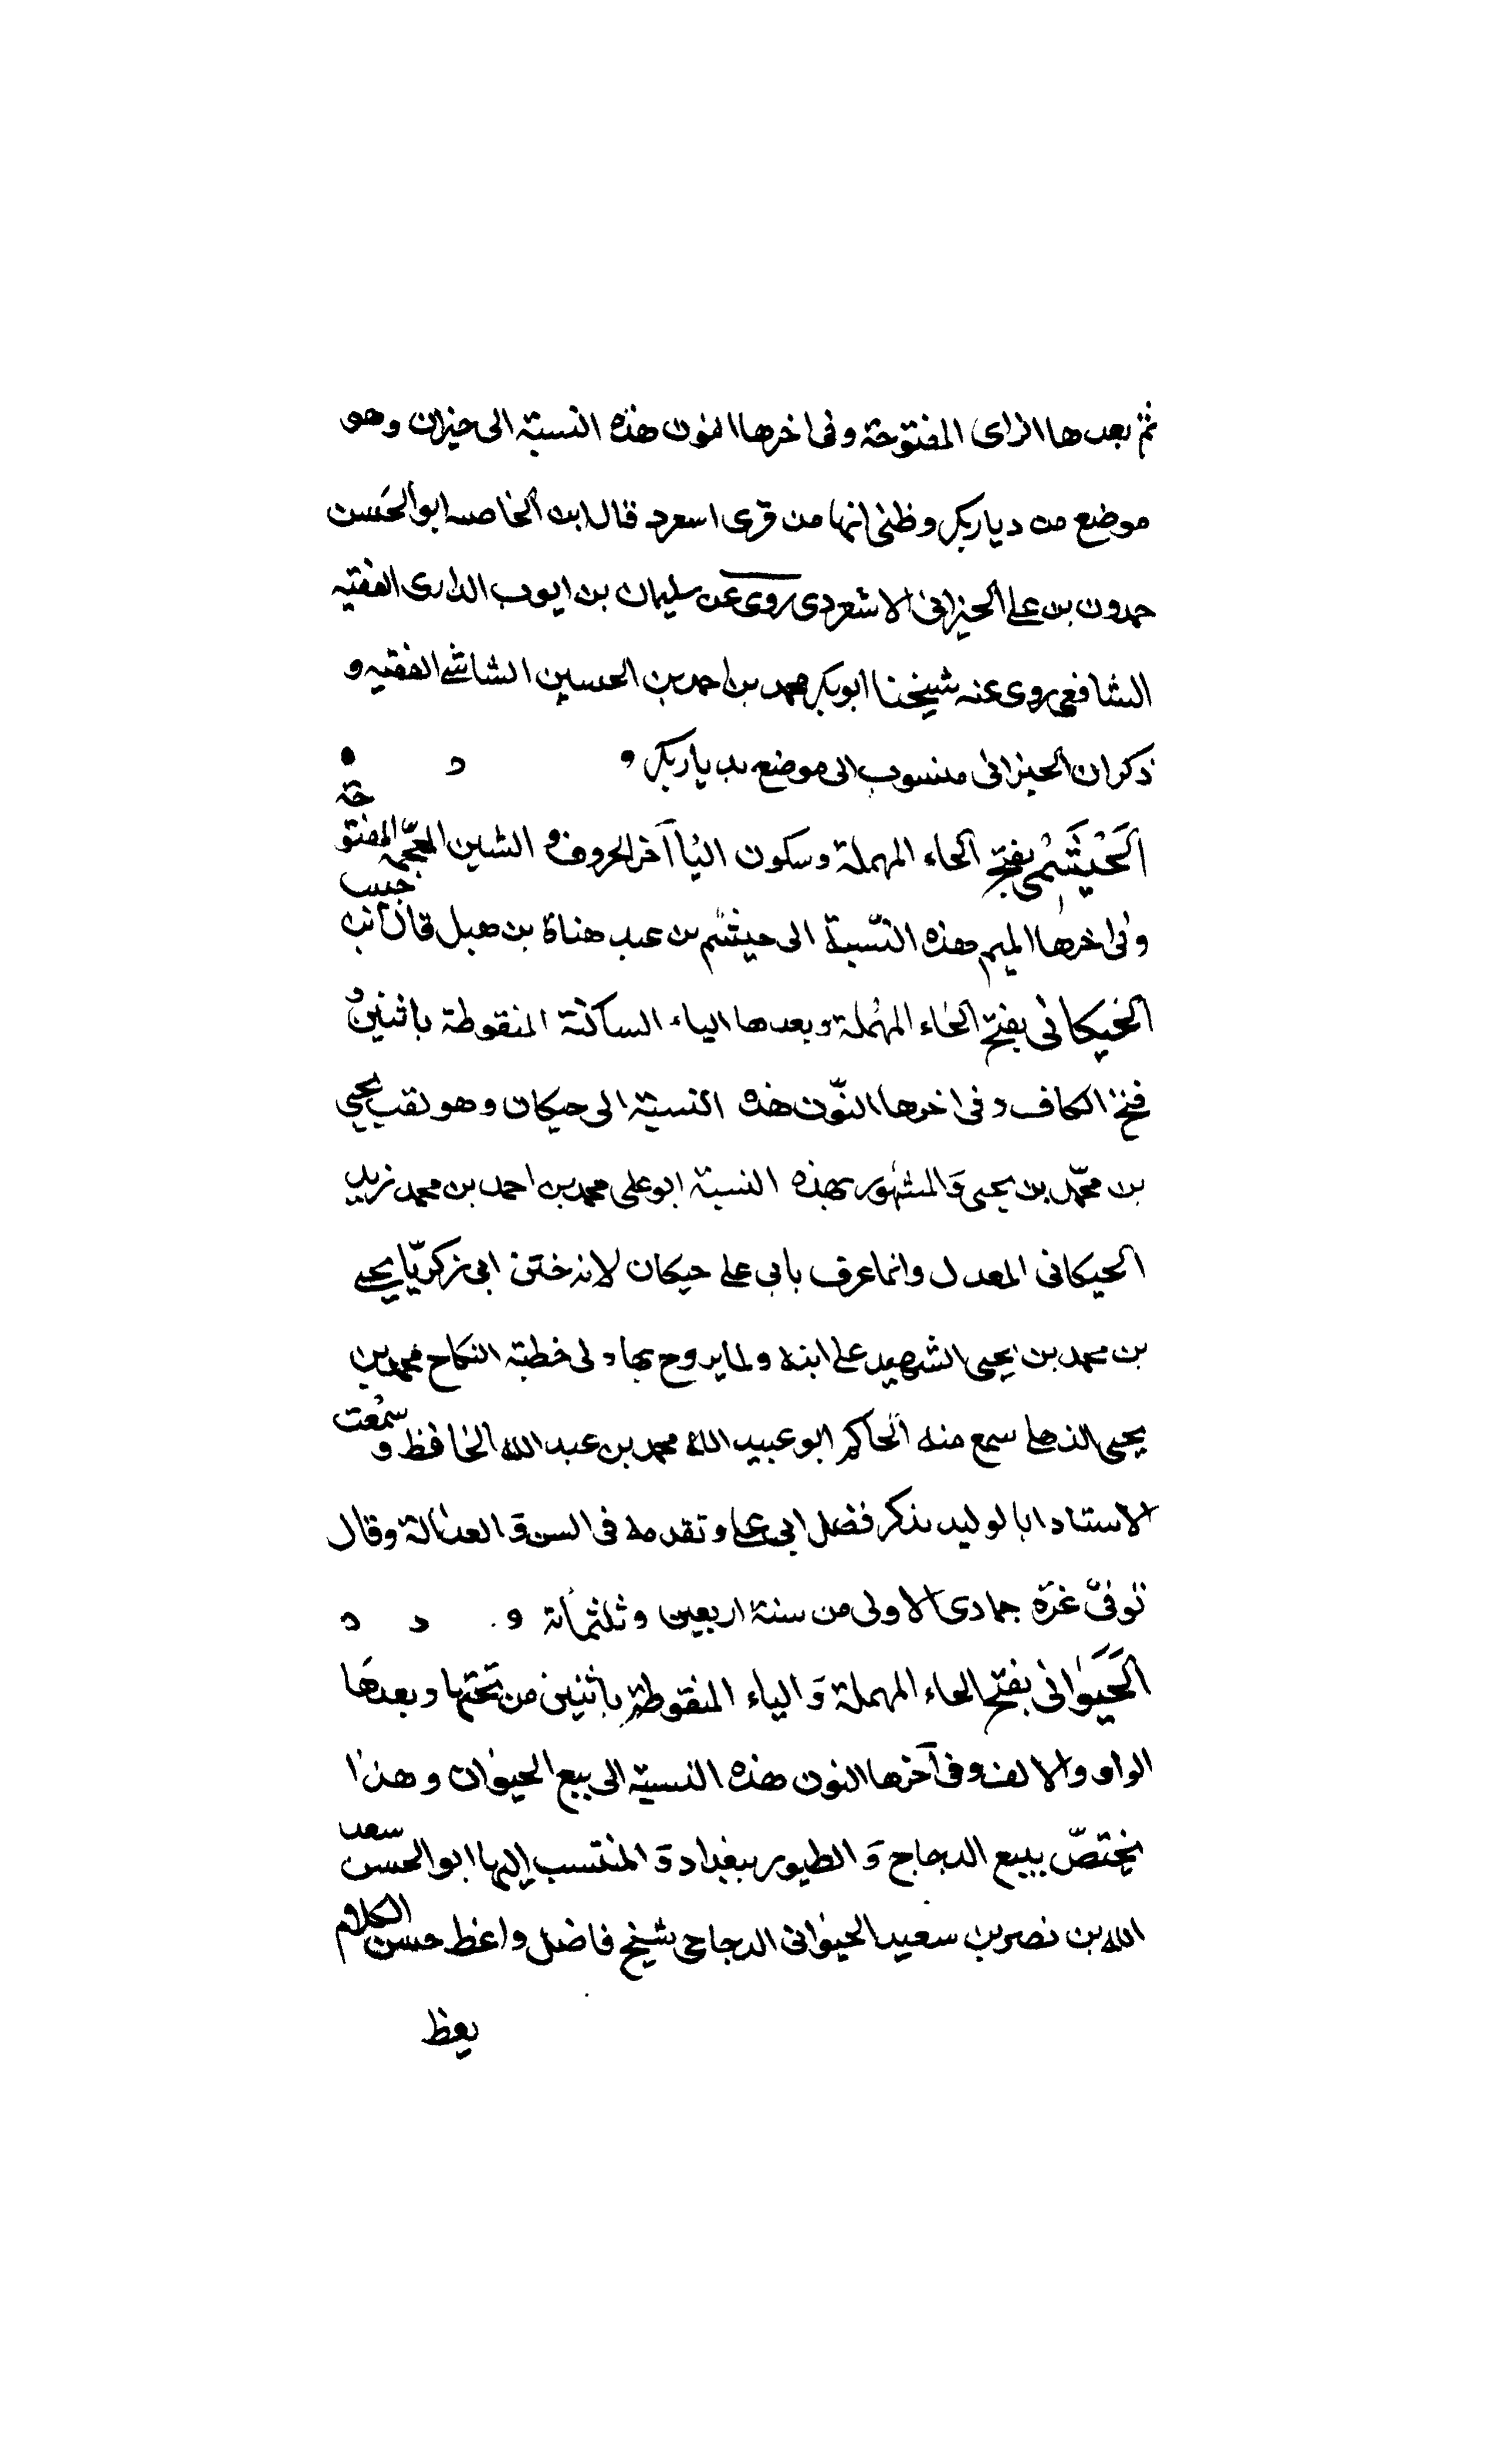 ثم بعدها الزاى المفتوحة وفى اخرها النون هذه النسبة الى حيزان وهو
موضع من ديار بكر وظنى انها من قرى اسعرد قال ابن الخاصبه ابو الحسن
حمدون بن على الحيزانى الاسعردى روى عن سليمان بن ايوب الدارى الفقيه
الشافعى روى عنه شيخنا ابو بكر محمد بن احمد بن الحسين الشاشى الفقيه و
ذكر ان الحيزانى منسوب الى موضع بديار بكر
الحَيْشَمى بفتح الحاء المهملة وسكون اليا آخر الحروف و الشين المعجمه المفتوحة
وفى اخرها الميم هذه النّسبة الى حيشم بن عبد هناة بن هبل قال ابن حبيب
الحيكانى بفتح الحاء المهملة وبعدها الياء الساكنة المنقوطة باثنين و
فتح الكاف وفى اخرها النّون هذه النسبة الى حيكان وهو لقب يحيى
بن محمّد بن يحيى وَالمشهور بهذه النسبة ابو على محمد بن احمد بن محمد زيد
الحيكانى المعدل وانما عرف بابى على حيكان لانه ختن ابى زكريّا يحيى
بن محمد بن يحيى الشهيد على ابنه ولما يروح بها ولى خطبة النكاح محمد بن
يحيى الذهلى سمع منه الحاكم ابو عبيد الله محمد بن عبد الله الحافظ و سمعت
الاستاد ابا لوليد يذكر فضل ابى على وتقدمه فى السن وَ العدالة وقال
توفىّ غرّة جمادى الاولى من سنة اربعين وثلثمأئة
الحَيَوانى بفتح الحاء المهملة وَ الياء المنقوطة باثنين من تحتها وبعدها
الواو والالف وفى آخرها النون هذه النسبة الى بيع الحيوان وهذا
يختصّ ببيع الدجاج وَ الطيور ببغداد وَ المنتسب إليها ابو الحسن سعد
الله بن نصر بن سعيد الحيوانى الدجاجى شيخ فاضل واعظ حسن الكلام و
يعظ